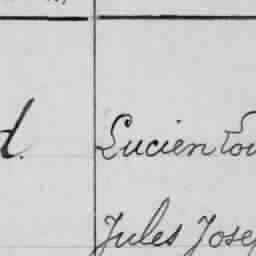 d. Lucien Lou
Jules Josep